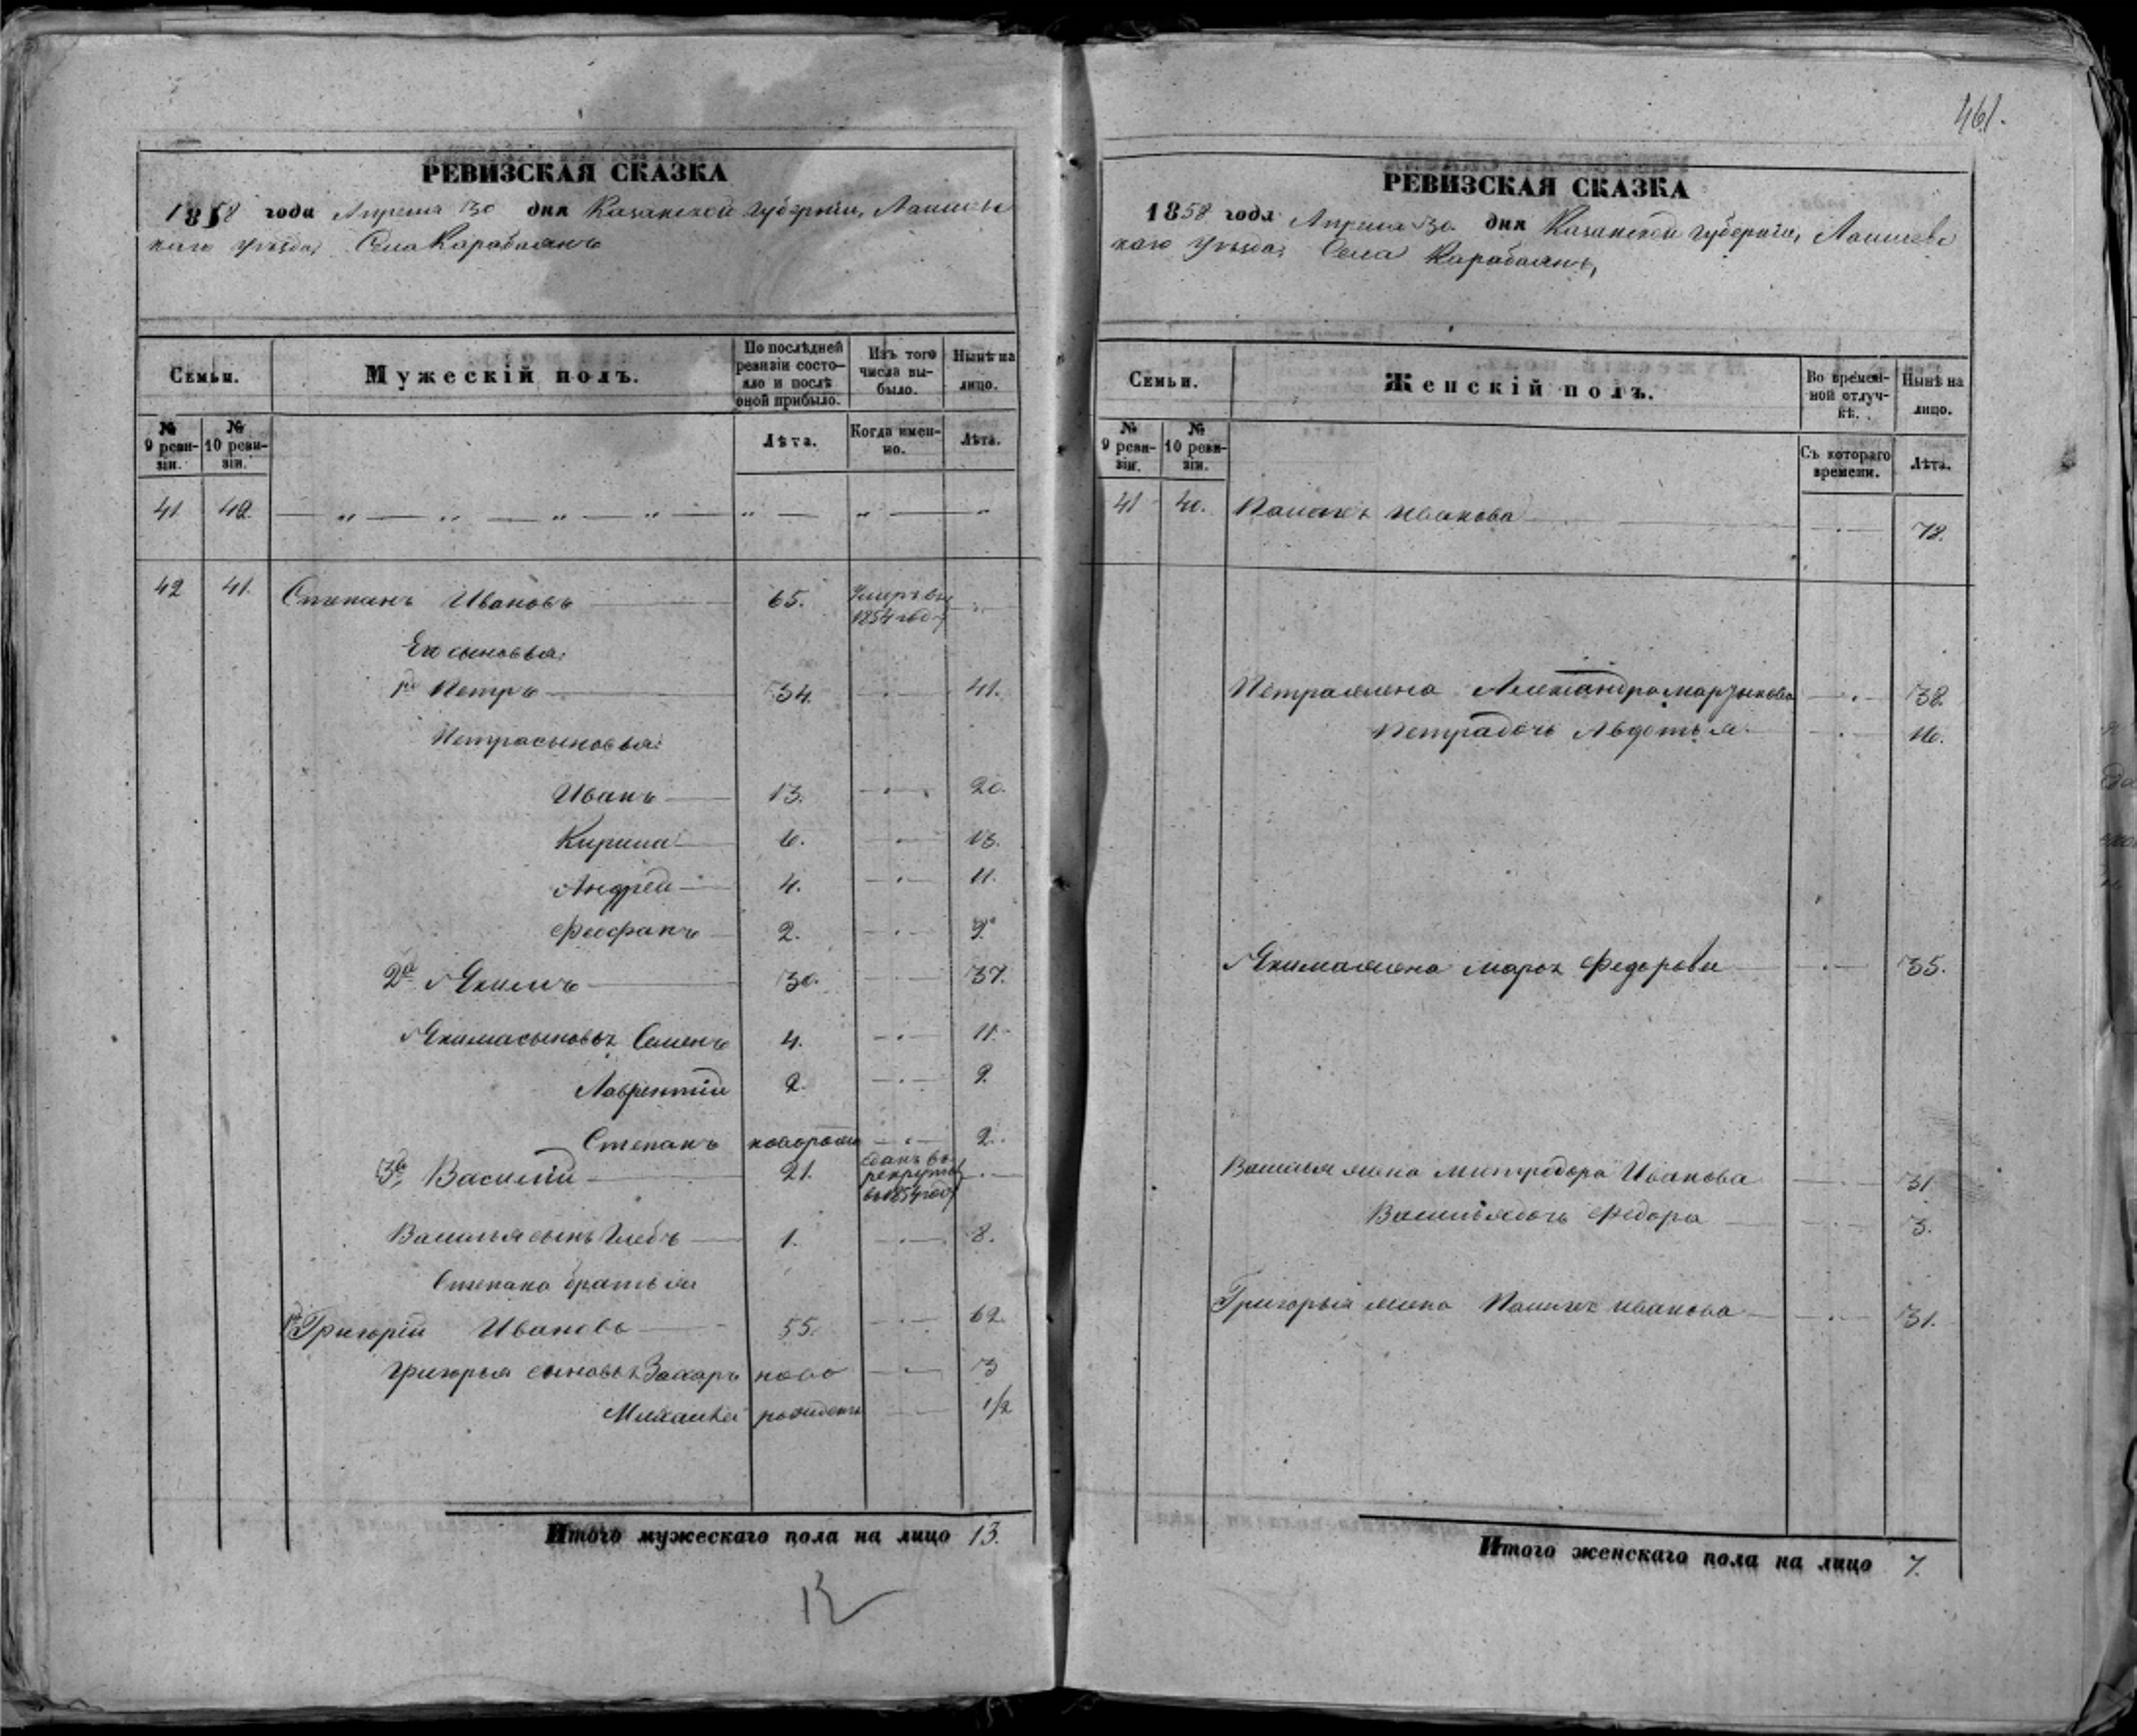 461.
РЕВИЗСКАЯ СКАЗКА
1858 года Апреля 30 дня Казанской губернии, Лаишевс
каго уезда, Села Карабаянъ
Семьи.
Мужескій полъ.
По послѣдней ревизіи состояло и послѣ оной прибыло.
Изъ того числа выбыло.
Нынѣ на лицо.
№ 9 ревизіи.
№ 10 ревизіи.
Лѣта.
Когда именно.
Лѣта.
41 40. — „ — „ — „ — „ — „ — „ — „
42 41. Степанъ Ивановъ 65. Умеръ въ 1854 году „
Его сыновья:
1й Петръ 34. 41.
Петра сыновья:
Иванъ 13. 20.
Кирила 6. 13.
Андрей 4. 11.
Феофанъ 2. 9.
2й Якимъ 30. 37.
Якима сыновья Семенъ 4. 11.
Лаврентій 2. 9.
Степанъ новорожд 2.
3й Василій 21. сданъ въ рекруты въ 1854 году
Василья сынъ Глебъ 1. 8.
Степана братья
1й Григорій Ивановъ 55. 62.
Григорья сыновья Захаръ ново 3
Михайла рожденъ 1/2
Итого мужескаго пола на лицо 13.
13
РЕВИЗСКАЯ СКАЗКА
1858 года Апреля 30. дня Казанской губерніи, Лаишевс
каго уезда, Села Карабаянъ,
Семьи.
Женскій полъ.
Во временной отлучкѣ.
Нынѣ на лицо.
№ 9 ревизіи.
№ 10 ревизіи.
Съ котораго времени.
Лѣта.
41 40. Иванова 78.
Петра жена Александра 38.
Петра дочь Авдотья 16.
Якима жена Марья Федорова 35.
Василья жена Митродора Иванова 31
Василья дочь Федора 3.
Григорья жена Иванова 31.
Итого женскаго пола на лицо 7.